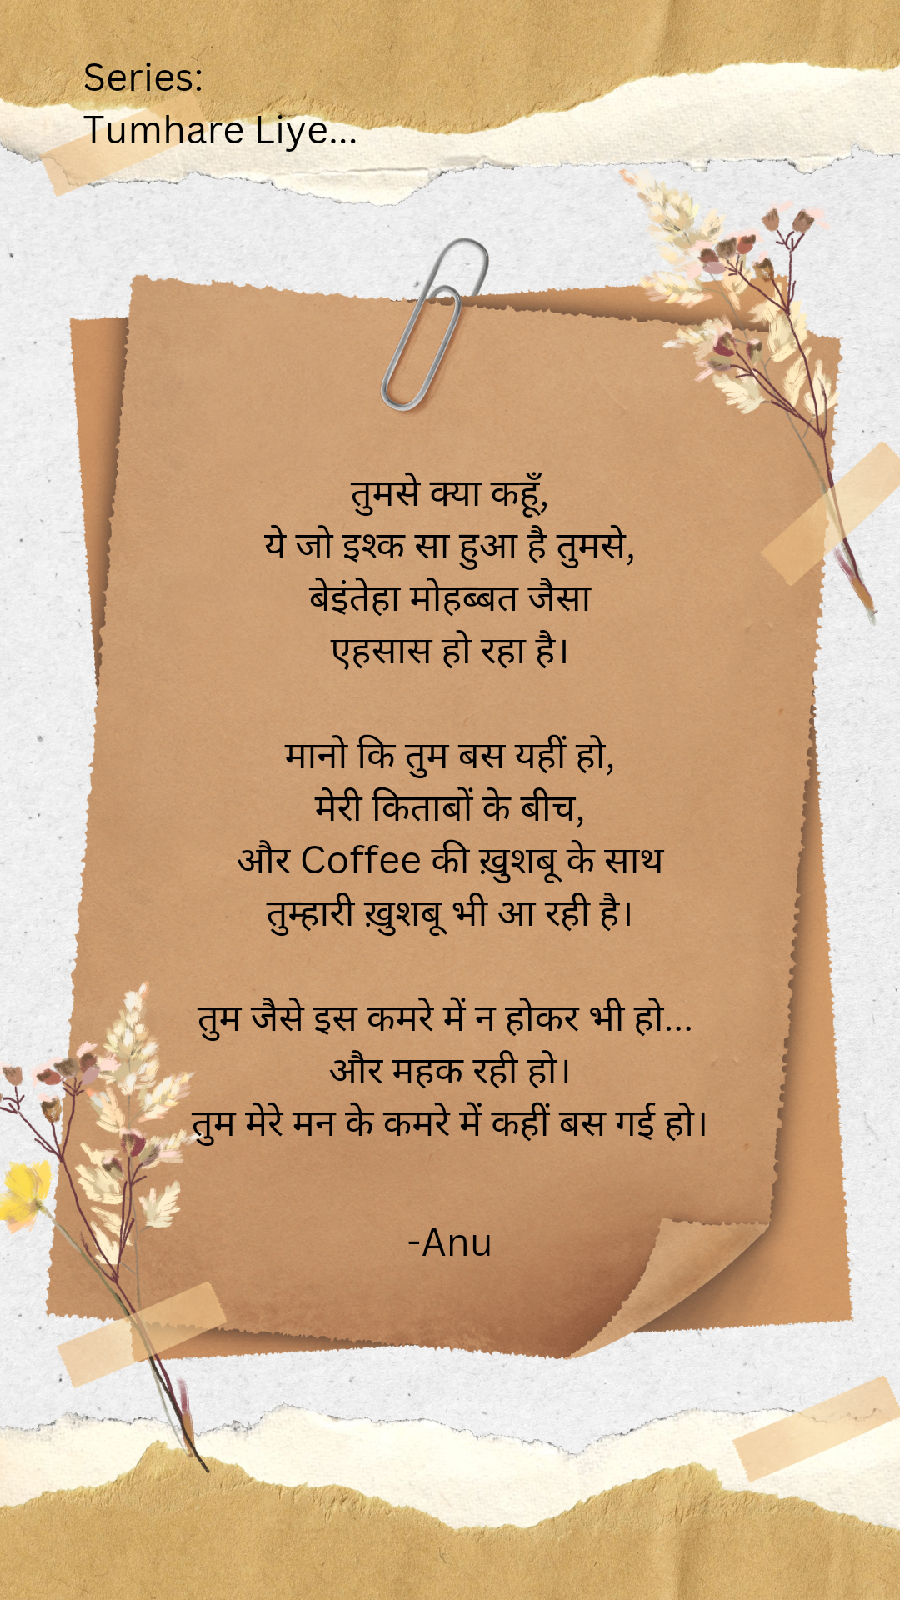 Series:
Tumhare Liye...
तुमसे क्या कहूँ,
ये जो इश्क सा हुआ है तुमसे,
बेइंतेहा मोहब्बत जैसा
एहसास हो रहा है।
मानो कि तुम बस यहीं हो,
मेरी किताबों के बीच,
और Coffee की ख़ुशबू के साथ
तुम्हारी ख़ुशबू भी आ रही है।
तुम जैसे इस कमरे में न होकर भी हो...
और महक रही हो।
तुम मेरे मन के कमरे में कहीं बस गई हो।
-Anu